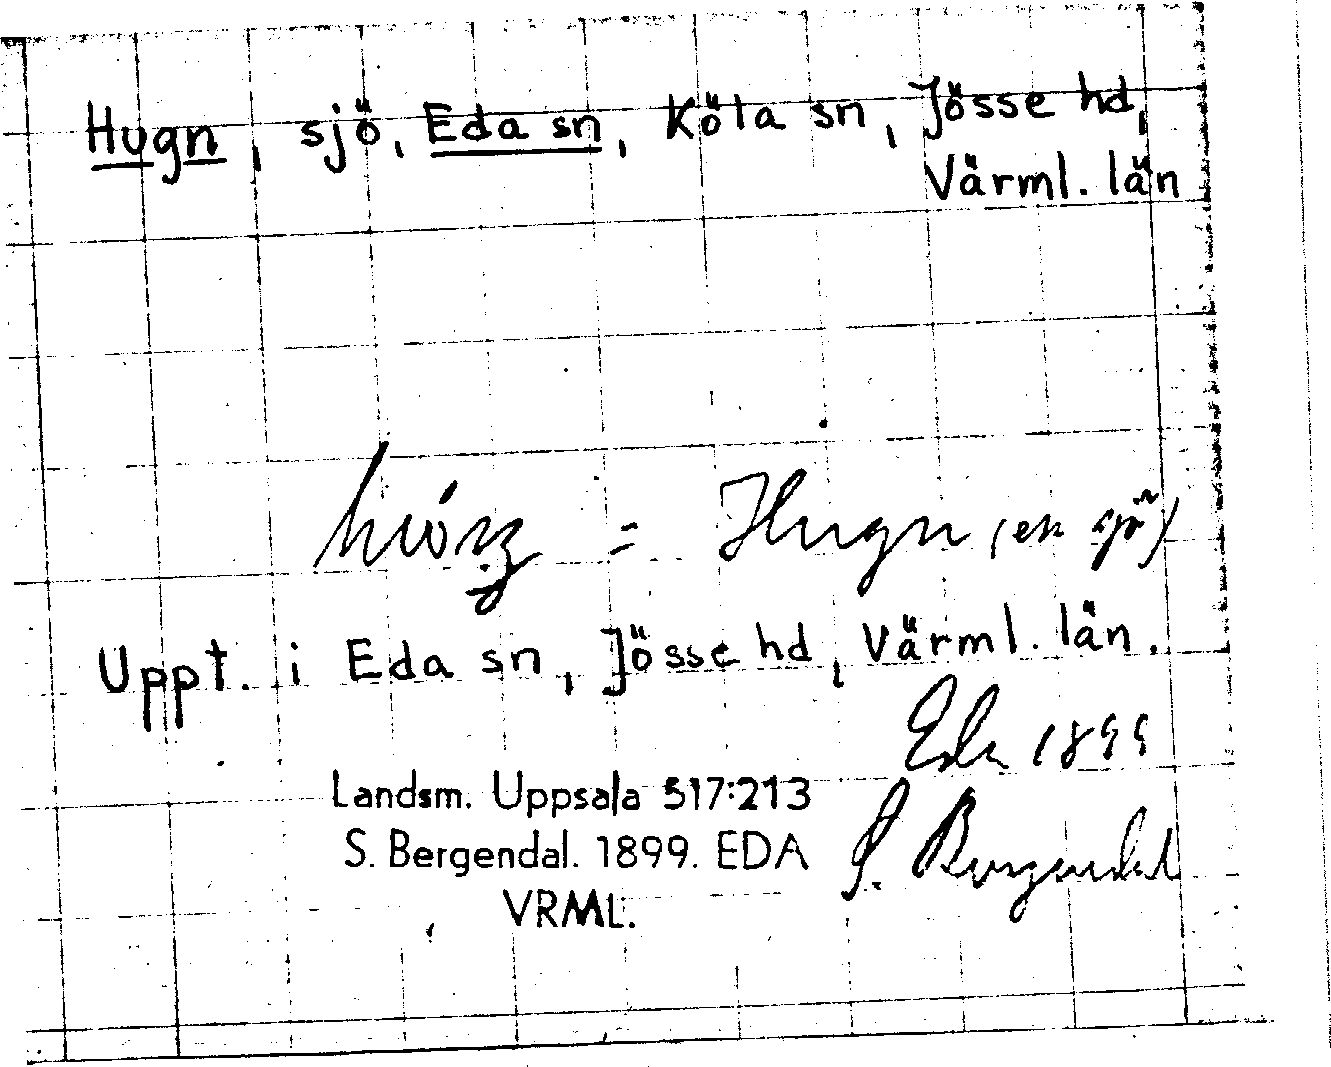 Hugn, sjö, Eda sn, Köla sn, Jösse hd,
Värml. län
= Hugn (en sjö)
Uppt. i Eda sn, Jösse hd, Värml. län.
Eda 1899
Landsm. Uppsala 517:213
S. Bergendal. 1899. EDA
S. Bergendal
VRML.